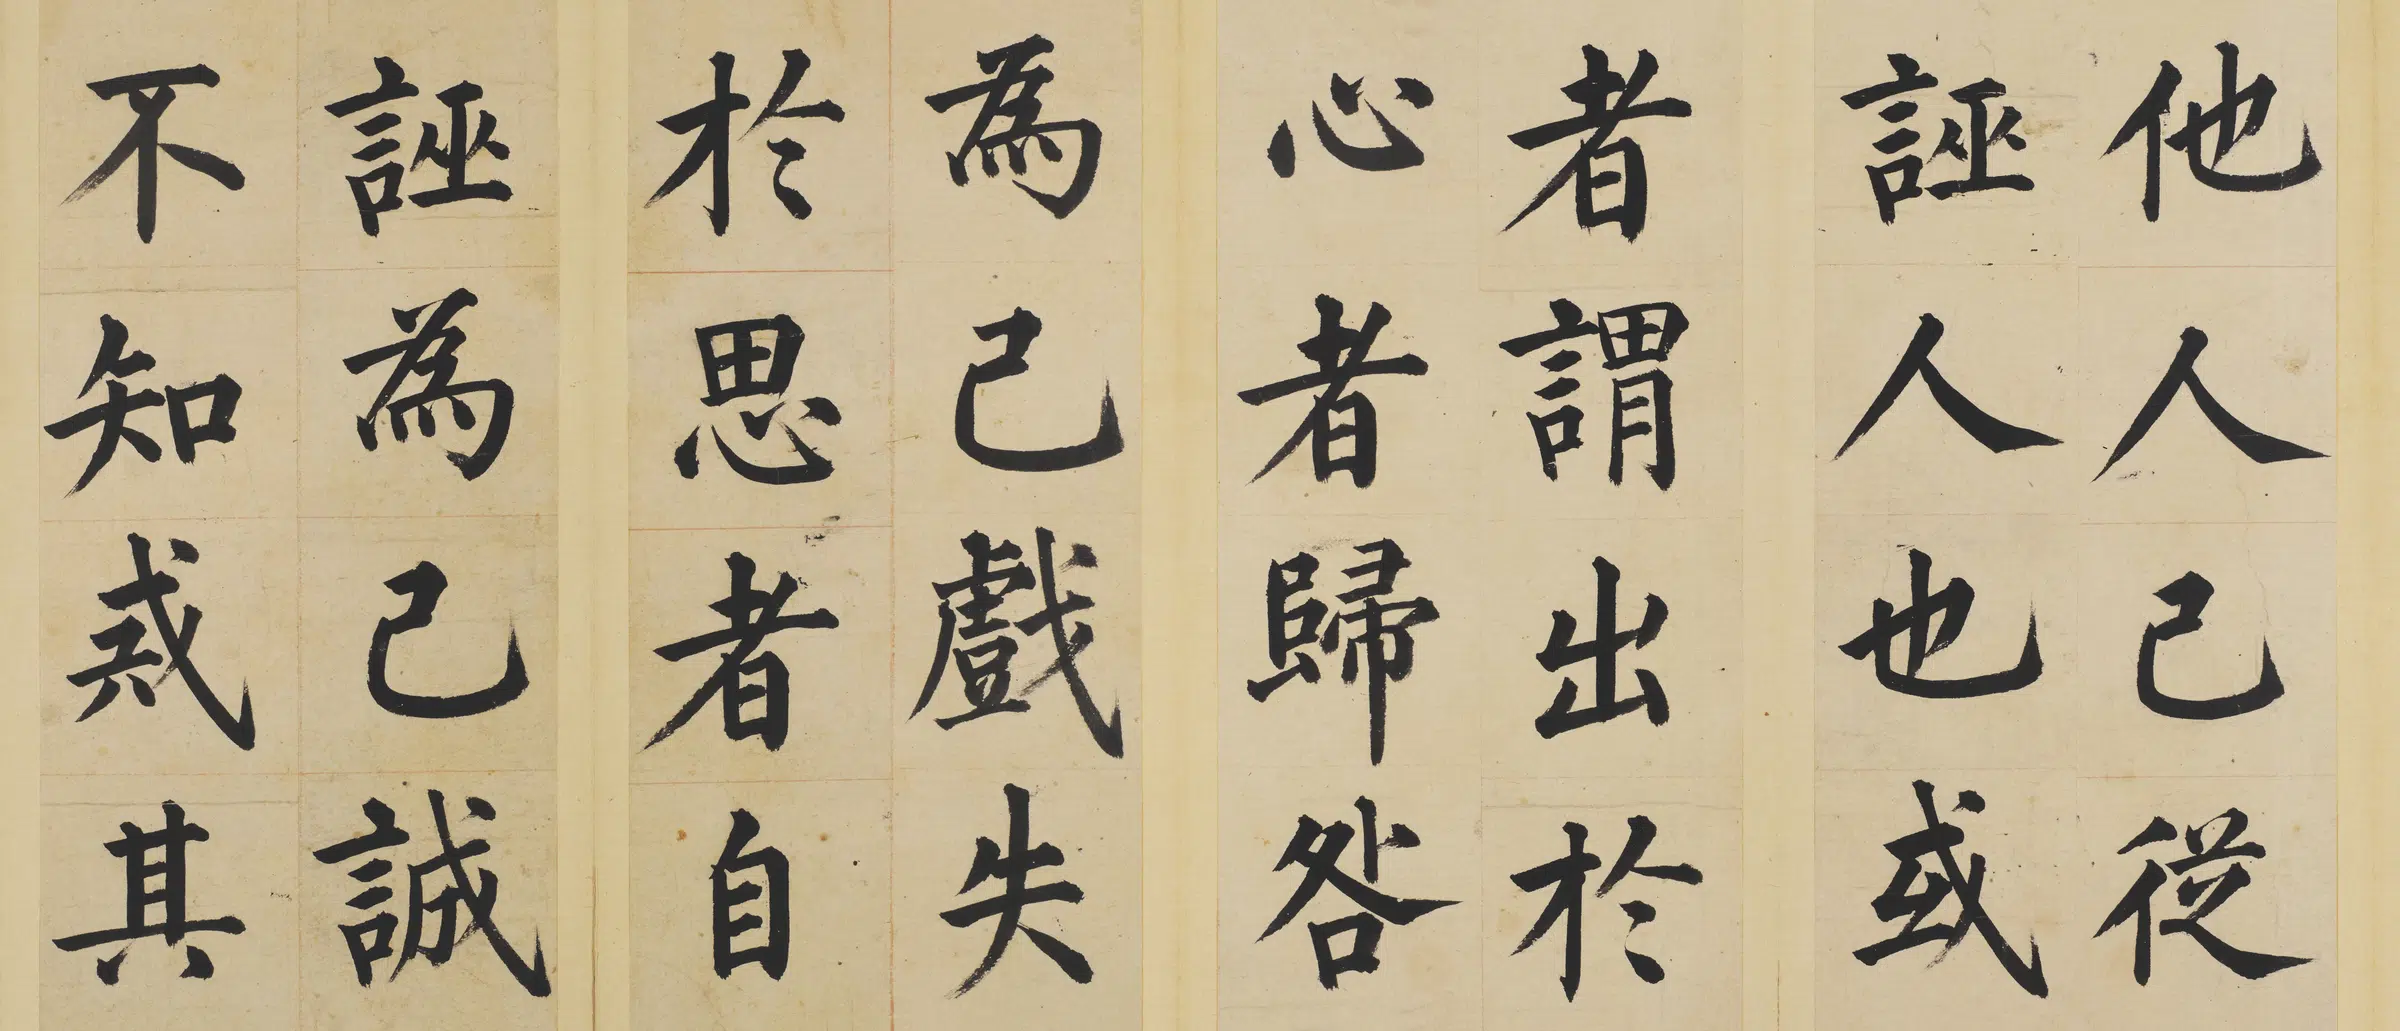 他人己從
誣人也或
者謂出於
心者歸咎
為己戲失
於思者自
誣為己誠
不知戒其